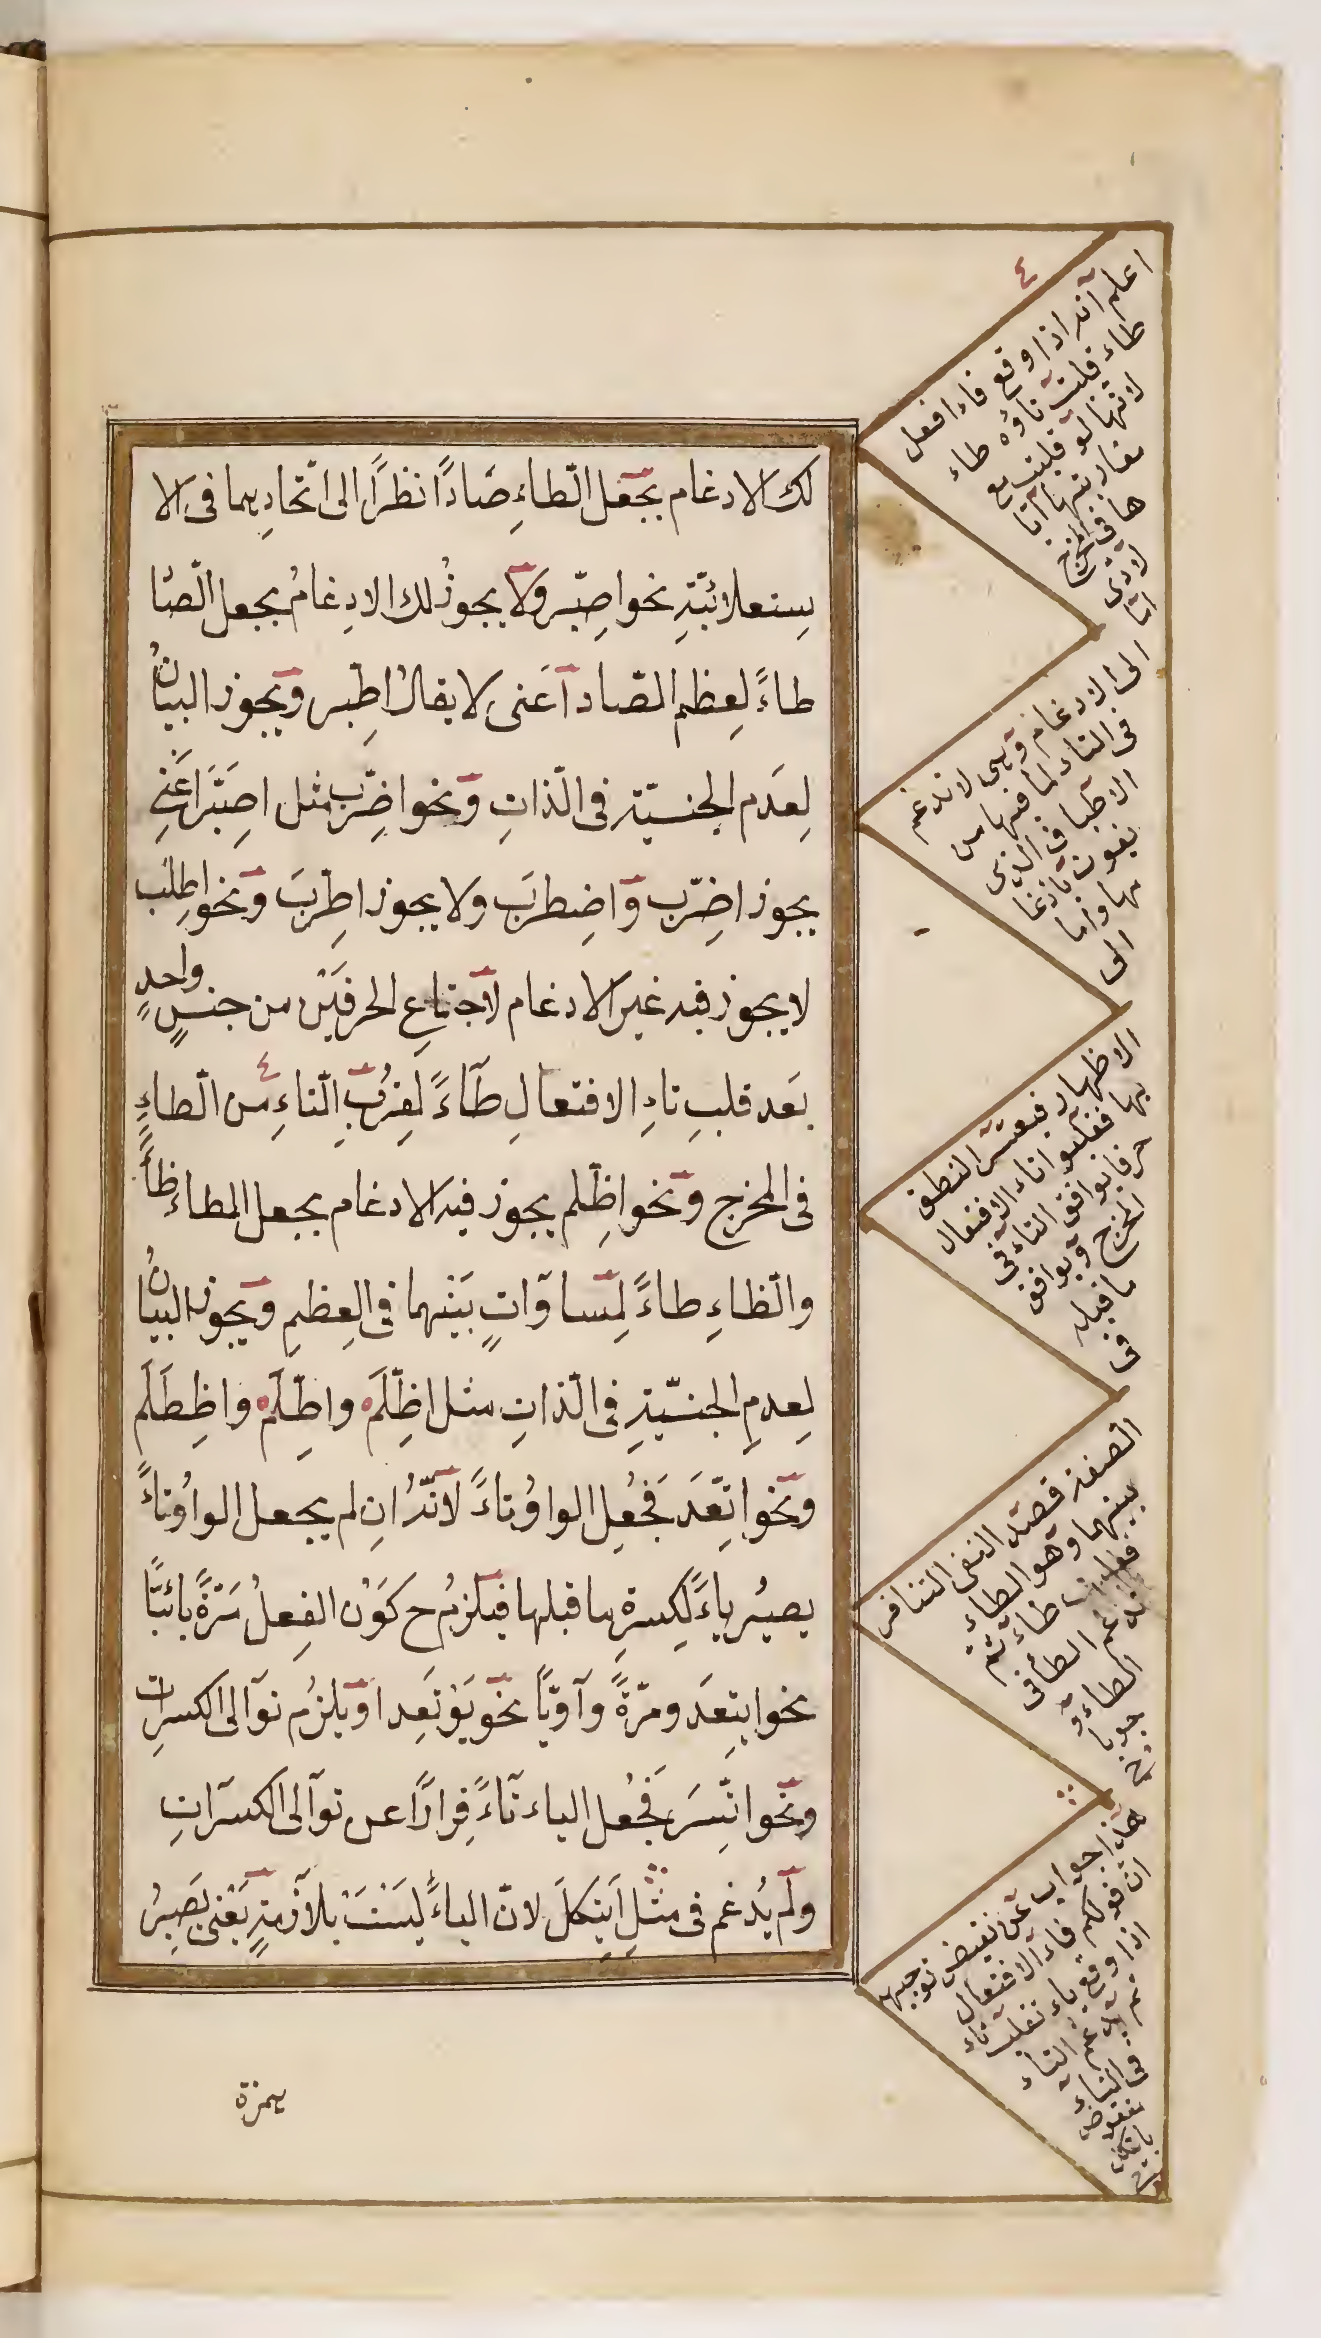 لك الادغام بجعل الطاءِ صَادًا نظرًا الى اتّحادِهما فى الا
ستعلائيّةِ نحو اصِبّر ولا يجوزُ لك الادِغامُ بجعل الصّا
طاءً لِعظم الصّاد اَعنى لا يقالُ اطِبر ويجوز البيانُ
لِعَدم الجنسيّةِ فى الذّاتِ ونحو اضِرّب مثل اصِبَّرَ اَعَنِى
يجوز اضِرّب واضِطرَبَ ولا يجوز اطِرّبَ ونحو اطِلبَ
لا يجوز فيه غير الادغام لاجتماعِ الحرفَيْن من جنسٍ واحدٍ
بَعد قلبِ تاءِ الافتعالِ طآءً لِقُربِ التّاءِ من الطّاءِ ٤
فى المخرج ونحو اظِّلم يجوز فيه الادغام بجعل الطاء ظاءً
والظّاءِ طاءً لِمساوآتٍ بَينهما فى العِظمِ ويجوز البيانُ
لِعدمِ الجنسيّةِ فى الذّاتِ مثل اظِّلَمَ واطِّلَمَ واظِطَلَم
ونحو اتّعَدَ فَجُعِل الواوُ تاءً لانّهُ ان لم يجعل الواوُ تاءً
يصيُر ياءً لِكسرةِ ما قبلها فيَلزمُ ح كَوْن الفِعلُ مَرّةً يائيًّا
نحو ايتِعدَ ومرّةً وآويًّا نحو يَوْتَعِد او يلزمُ توآلى الكسراتِ
ونحو اتِّسَرَ فَجُعل الياء تآءً فِرارًا عن توآلى الكسرَاتِ
ولم يُدغم فى مثلِ اَيتِكلَ لانّ الياءَ ليسَتْ بلآزمةٍ يَعْنى يَصِيُر
همزة
٤
اعلم آنه اذا وقع فاء افعل
طاء قلبت تاؤه طاء
لانها لو قلبت مع
مقاربتها ايّا
ها فى المخرج
لادّى
امّا
الى الادغام وهى لا تدغم
فى التاء لما فيها من
الاطباق الذى
يفوت بادغا
مها واما
الى
الاظهار فيعسّر النطق
بها فقلبوا تاء الافتعال
حرفا يوافق التاء فى
المخرج ويوافق
ما قبله
فى
الصفة قصد النفى التنافر
بينهما وهو الطاء
فقلبت طاء ثم
تدغم الطاء فى
الطاء و
جوبا
هذا جواب عن نقيض توجيهه
ان قولكم فاء الافتعال
اذا وقع ياء تقلب تاء
ثم يدغم التاء
فى التاء